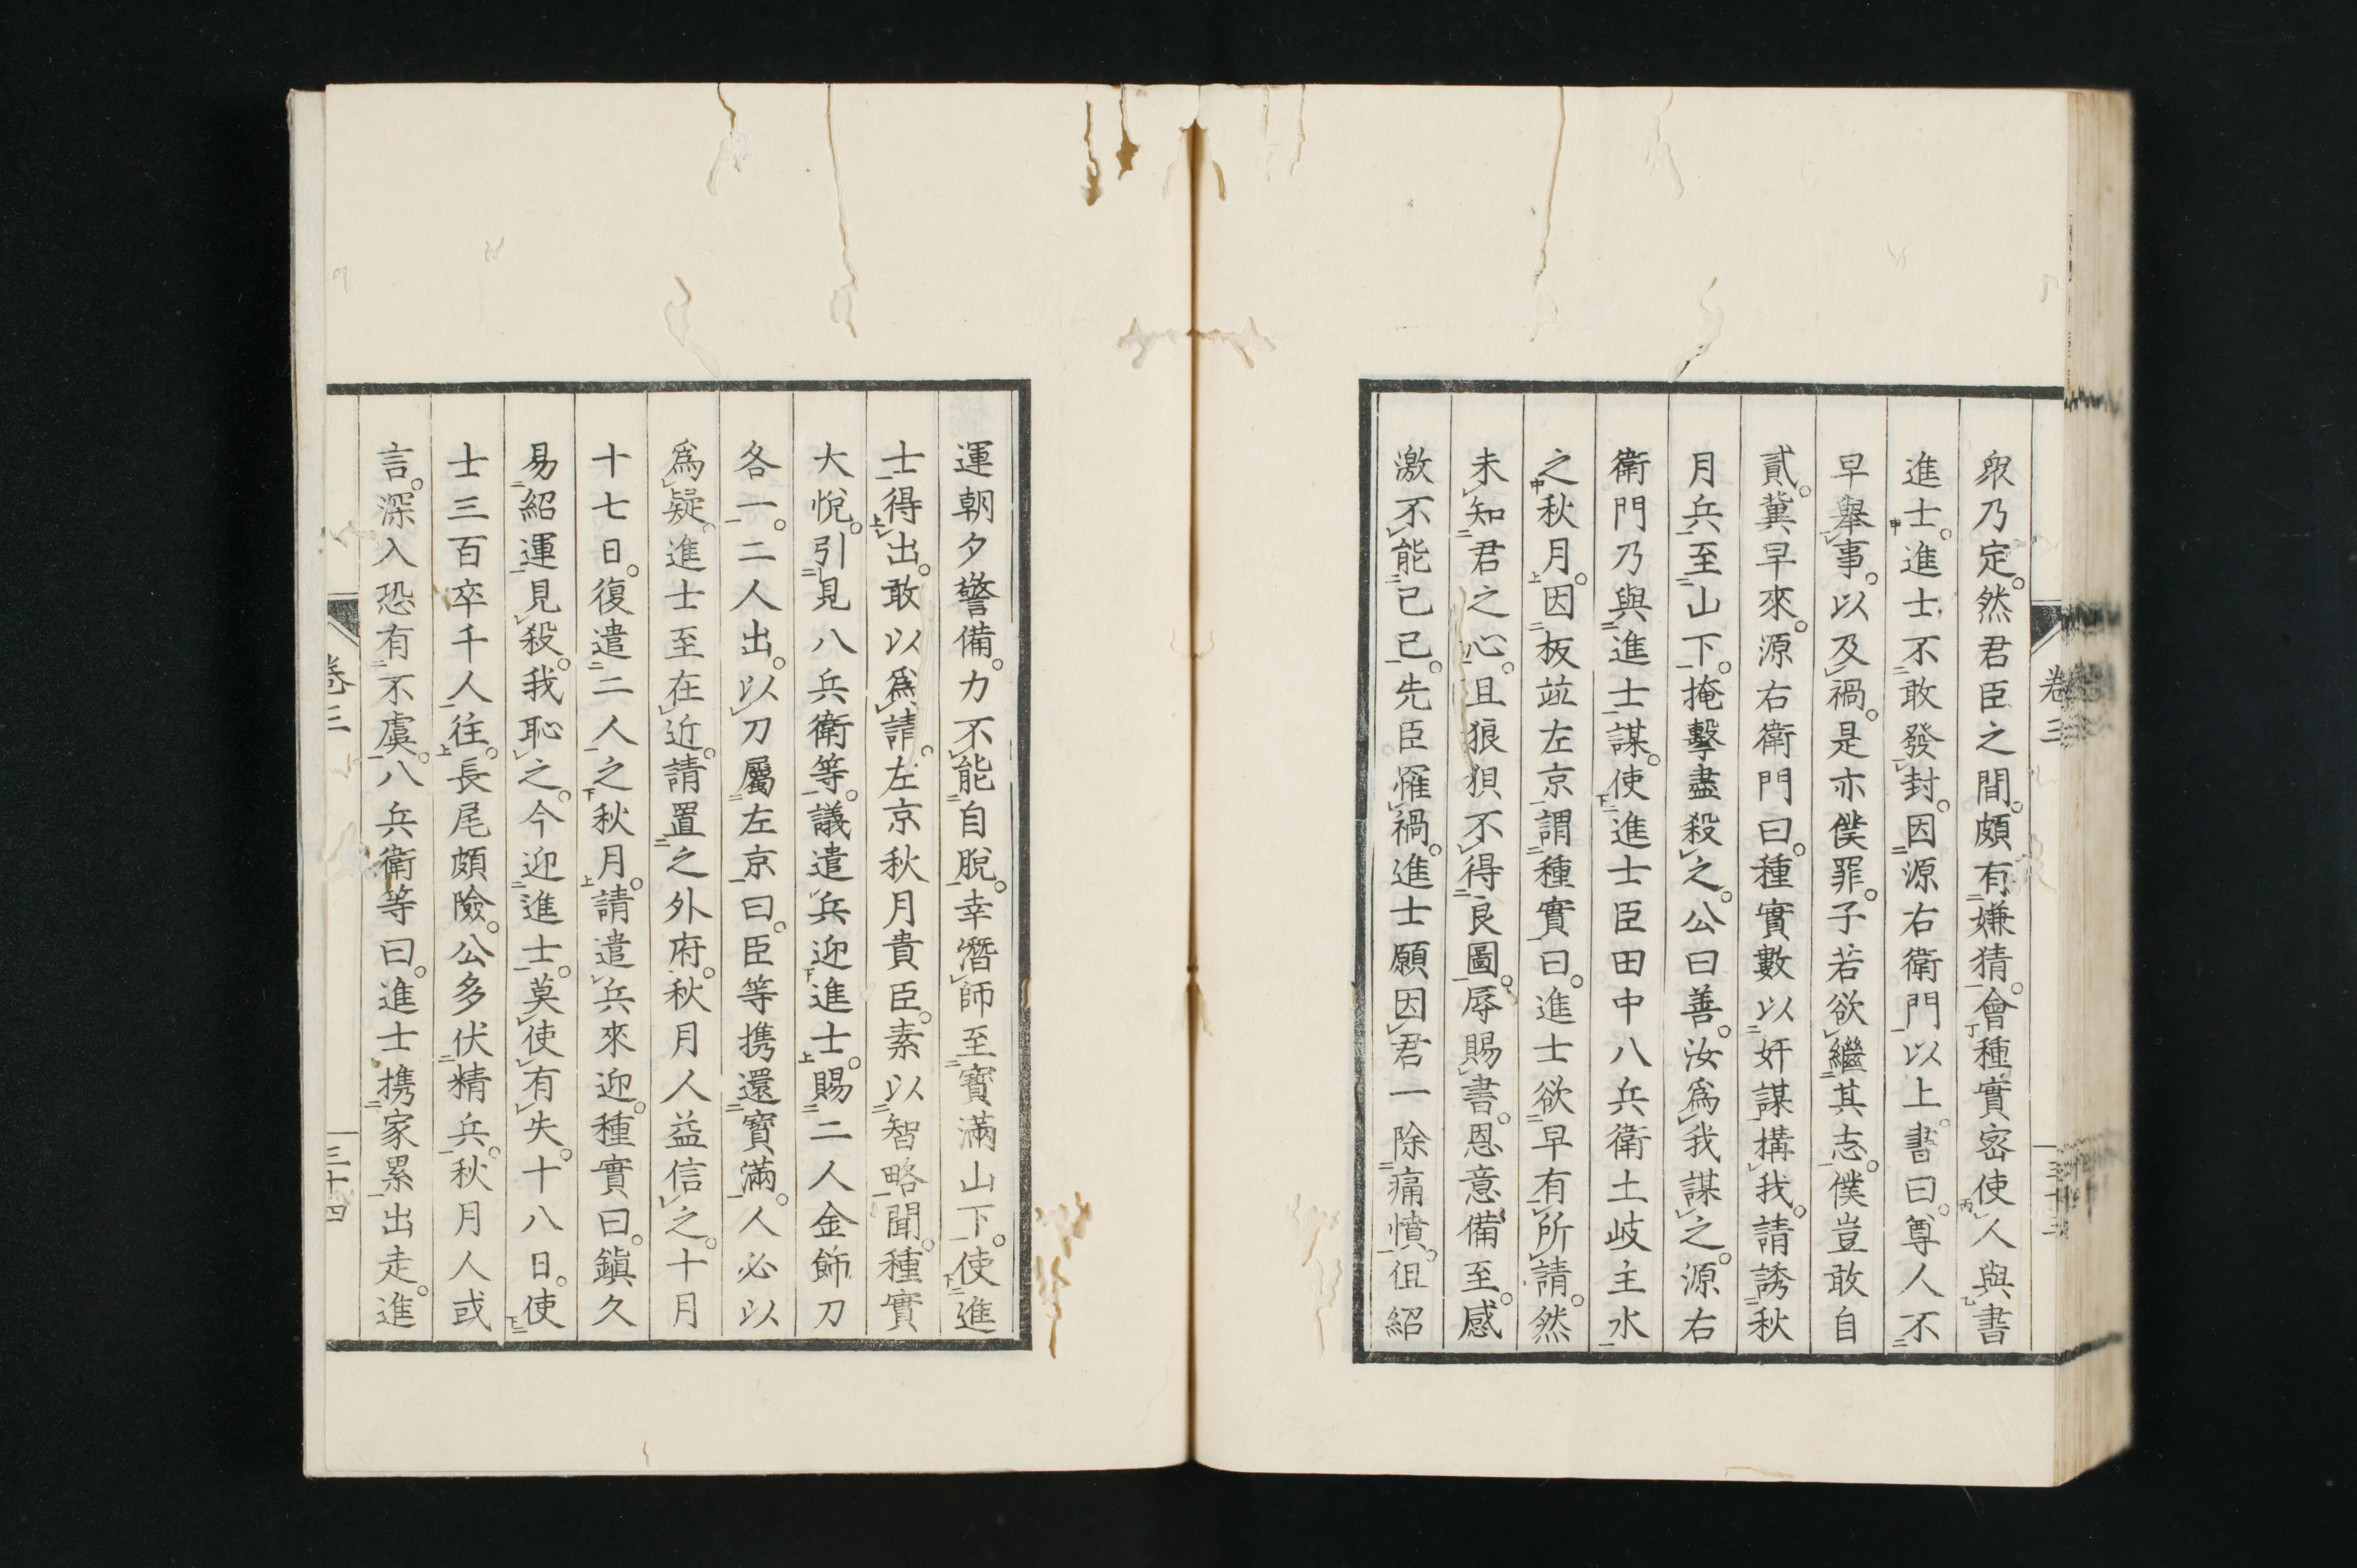 卷三
三十三
衆乃定。然君臣之間。頗有嫌猜。會種實密使人與書
進士。進士不敢發封。因源右衛門以上書曰。尊人不
早舉事。以及禍。是亦僕罪。子若欲繼其志。僕豈敢自
貳。冀早來。源右衛門曰。種實數以奸謀構我。請誘秋
月兵至山下。掩擊盡殺之。公曰善。汝爲我謀之。源右
衛門乃與進士謀。使進士臣田中八兵衛土岐主水
之秋月。因板並左京謂種實曰。進士欲早有所請。然
未知君之心。且狼狽不得良圖。辱賜書。恩意備至。感
激不能已已。先臣罹禍。進士願因君一除痛憤。但紹
運朝夕警備。力不能自脫。幸潛師至寶滿山下。使進
士得出。敢以爲請。左京秋月貴臣。素以智略聞。種實
大悅。引見八兵衛等。議遣兵迎進士。賜二人金飾刀
各一。二人出。以刀屬左京曰。臣等携還寶滿。人必以
爲疑。進士至在近。請置之外府。秋月人益信之。十月
十七日。復遣二人之秋月。請遣兵來迎。種實曰。鎮久
易紹運見殺。我恥之。今迎進士。莫使有失。十八日。使
士三百卒千人往。長尾頗險。公多伏精兵。秋月人或
言。深入恐有不虞。八兵衛等曰。進士携家累出走。進
卷三
三十四